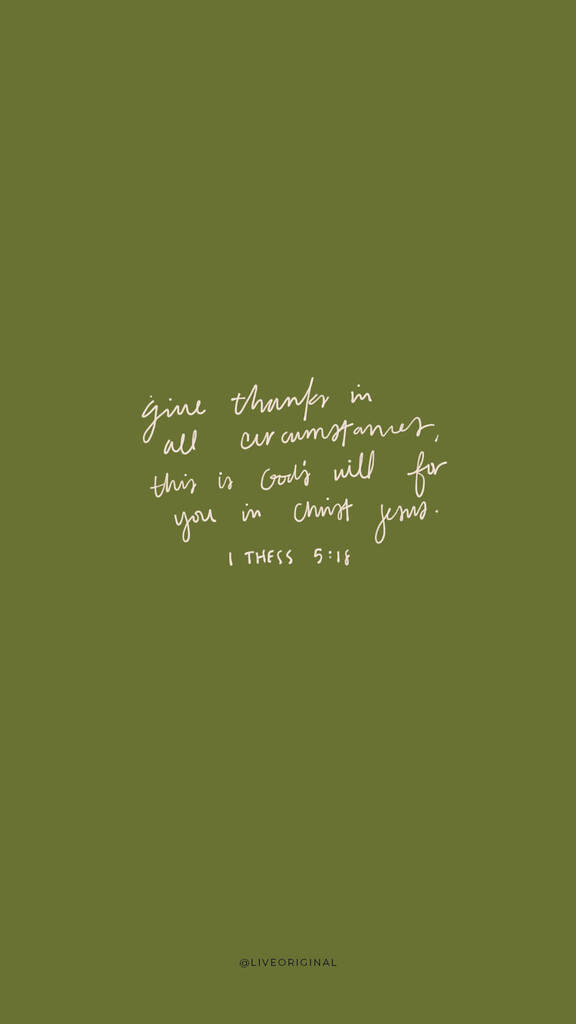 give thanks in
all circumstances,
this is God's will for
you in Christ Jesus.
1 THESS 5:18
@LIVEORIGINAL